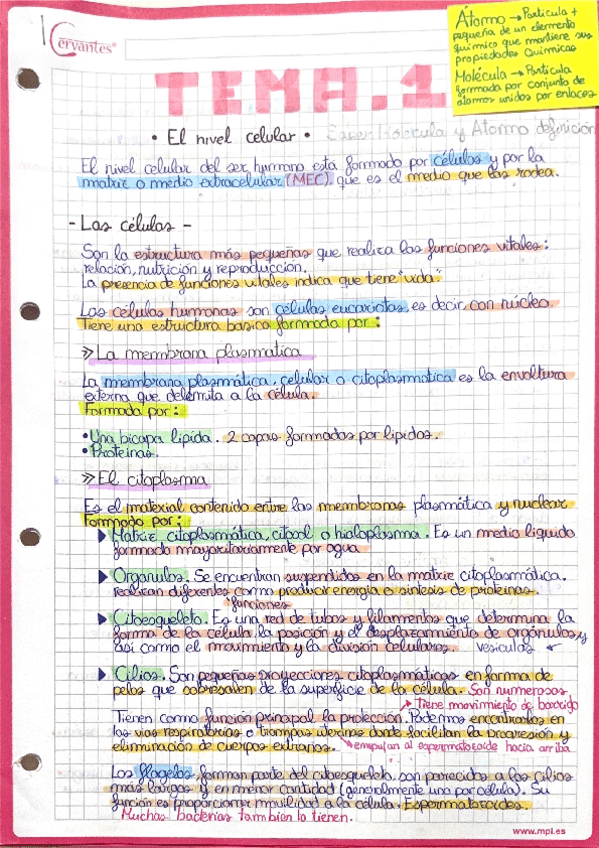 Cervantes
Átomo → Partícula +
pequeña de un elemento
químico que mantiene sus
propiedades Químicas
Molécula → Partícula
formada por conjunto de
átomos unidos por enlaces
TEMA.1
• El nivel celular • Saber Molécula y Átomo definición
El nivel celular del ser humano está formado por células y por la
matriz o medio extracelular (MEC), que es el medio que las rodea.
- Las células -
Son la estructura más pequeñas que realiza las funciones vitales:
relación, nutrición y reproducción.
La presencia de funciones vitales indica que tiene "vida".
Las células humanas son células eucariotas, es decir, con núcleo.
Tiene una estructura basica formada por:
» La membrana plasmatica
La membrana plasmática, celular o citoplasmatica es la envoltura
externa que delimita a la célula.
Formada por:
• Una bicapa lipída. 2 capas formadas por lipidos.
• Proteinas.
» El citoplasma
Es el material contenido entre las membranas plasmática y nuclear.
Formado por:
Matriz citoplasmática, citosol o hialoplasma. Es un medio liquido
formado mayoritariamente por agua
Organulos. Se encuentran suspendidos en la matriz citoplasmática.
realizan diferentes como producir energía o sintesis de proteinas.
funciones
Citoesqueleto. Es una red de tubos y filamentos que determina la
forma de la célula, la posición y el desplazamiento de orgánulos y
así como el movimiento y la división celulares. vesiculas
Cilios. Son pequeñas proyecciones citoplasmáticas en forma de
pelos que sobresalen de la superficie de la célula. Son numerosos,
Tiene movimiento de barrido
Tienen como función principal la protección. Podemos encontrarlos en
las vias respiratorias o trompas uterinas donde facilitan la progresión y
eliminación de cuerpos extraños. empujan al espermatozoide hacia arriba
Los flagelos, forman parte del citoesqueleto, son parecidos a los cilios
más largos y en menor cantidad (generalmente una por célula). Su
función es proporcionar movilidad a la célula. Espermatozoides.
Muchas bacterias también lo tienen.
www.mpl.es